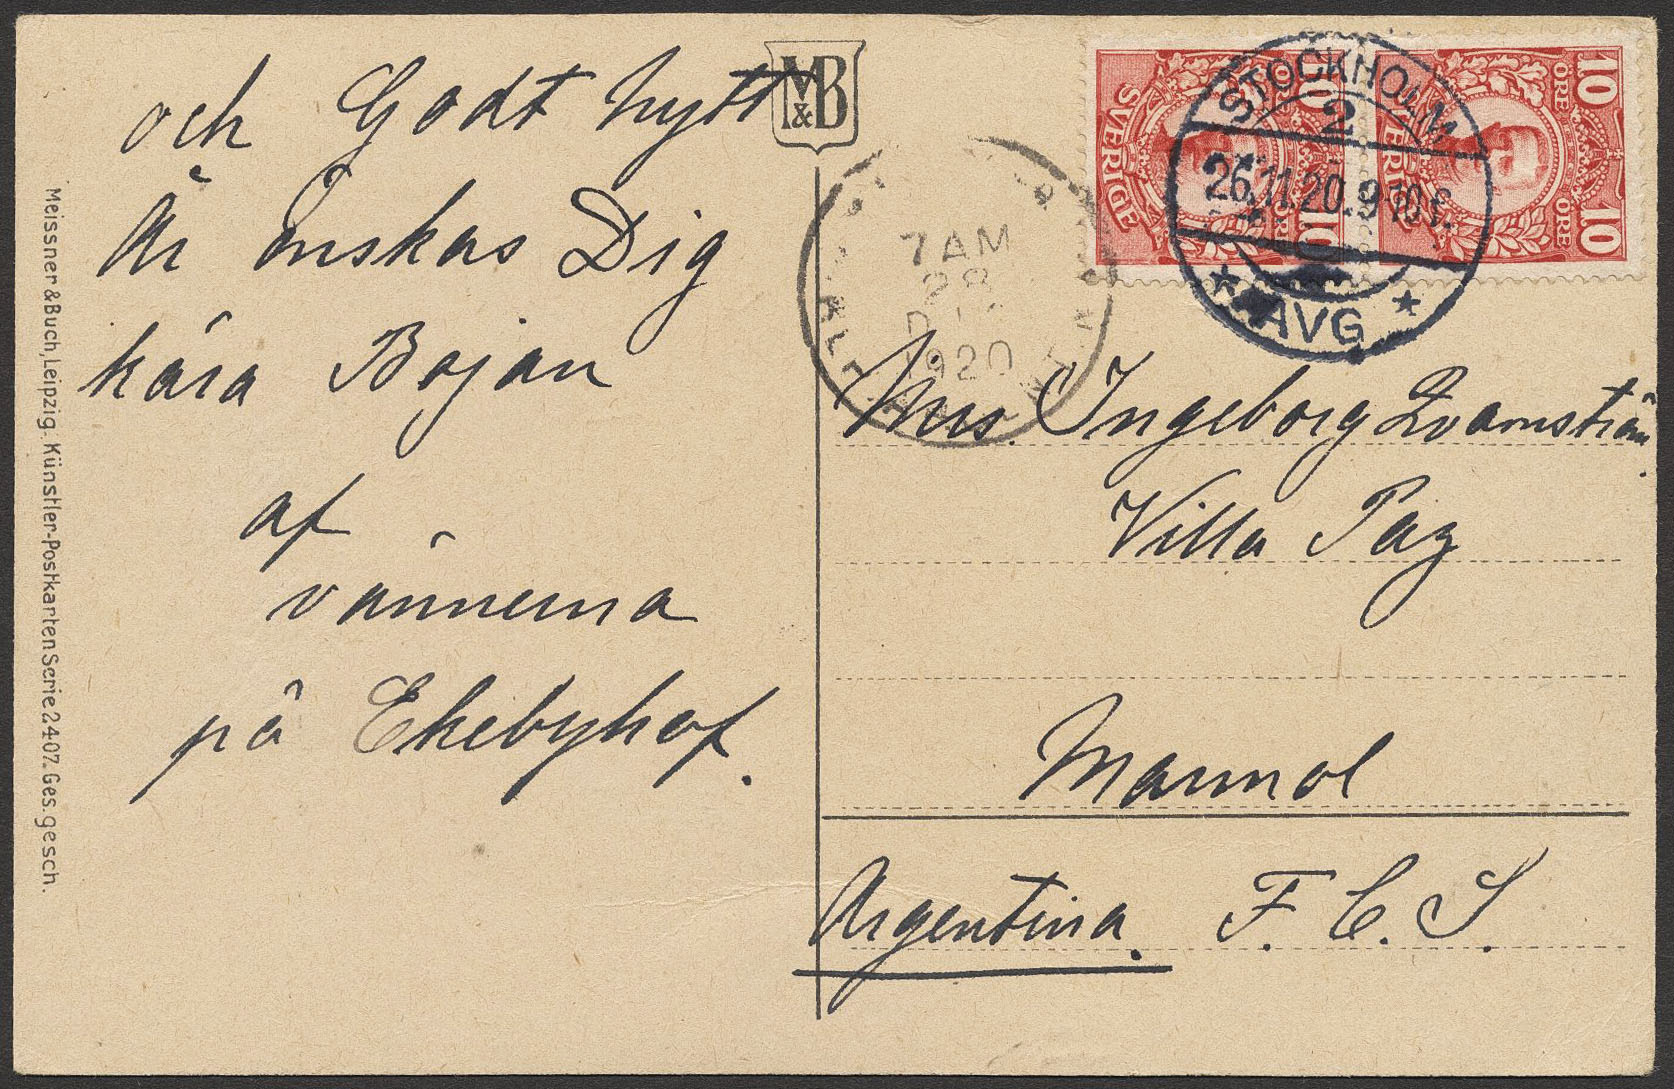 och Godt Nytt
År önskas Dig
kära Bojan
af
vännerna
på Ekebyhof.
Meissner & Buch, Leipzig. Künstler-Postkarten Serie 2407. Ges. gesch.
M&B
7 AM
28
1920
STOCKHOLM
2
26.11.20.9-10 f.
AVG
SVERIGE
10 ÖRE ÖRE 10
SVERIGE
10 ÖRE ÖRE 10
Mrs. Ingeborg Qvarnström
Villa Paz
Marmol
Argentina. F. C. S.